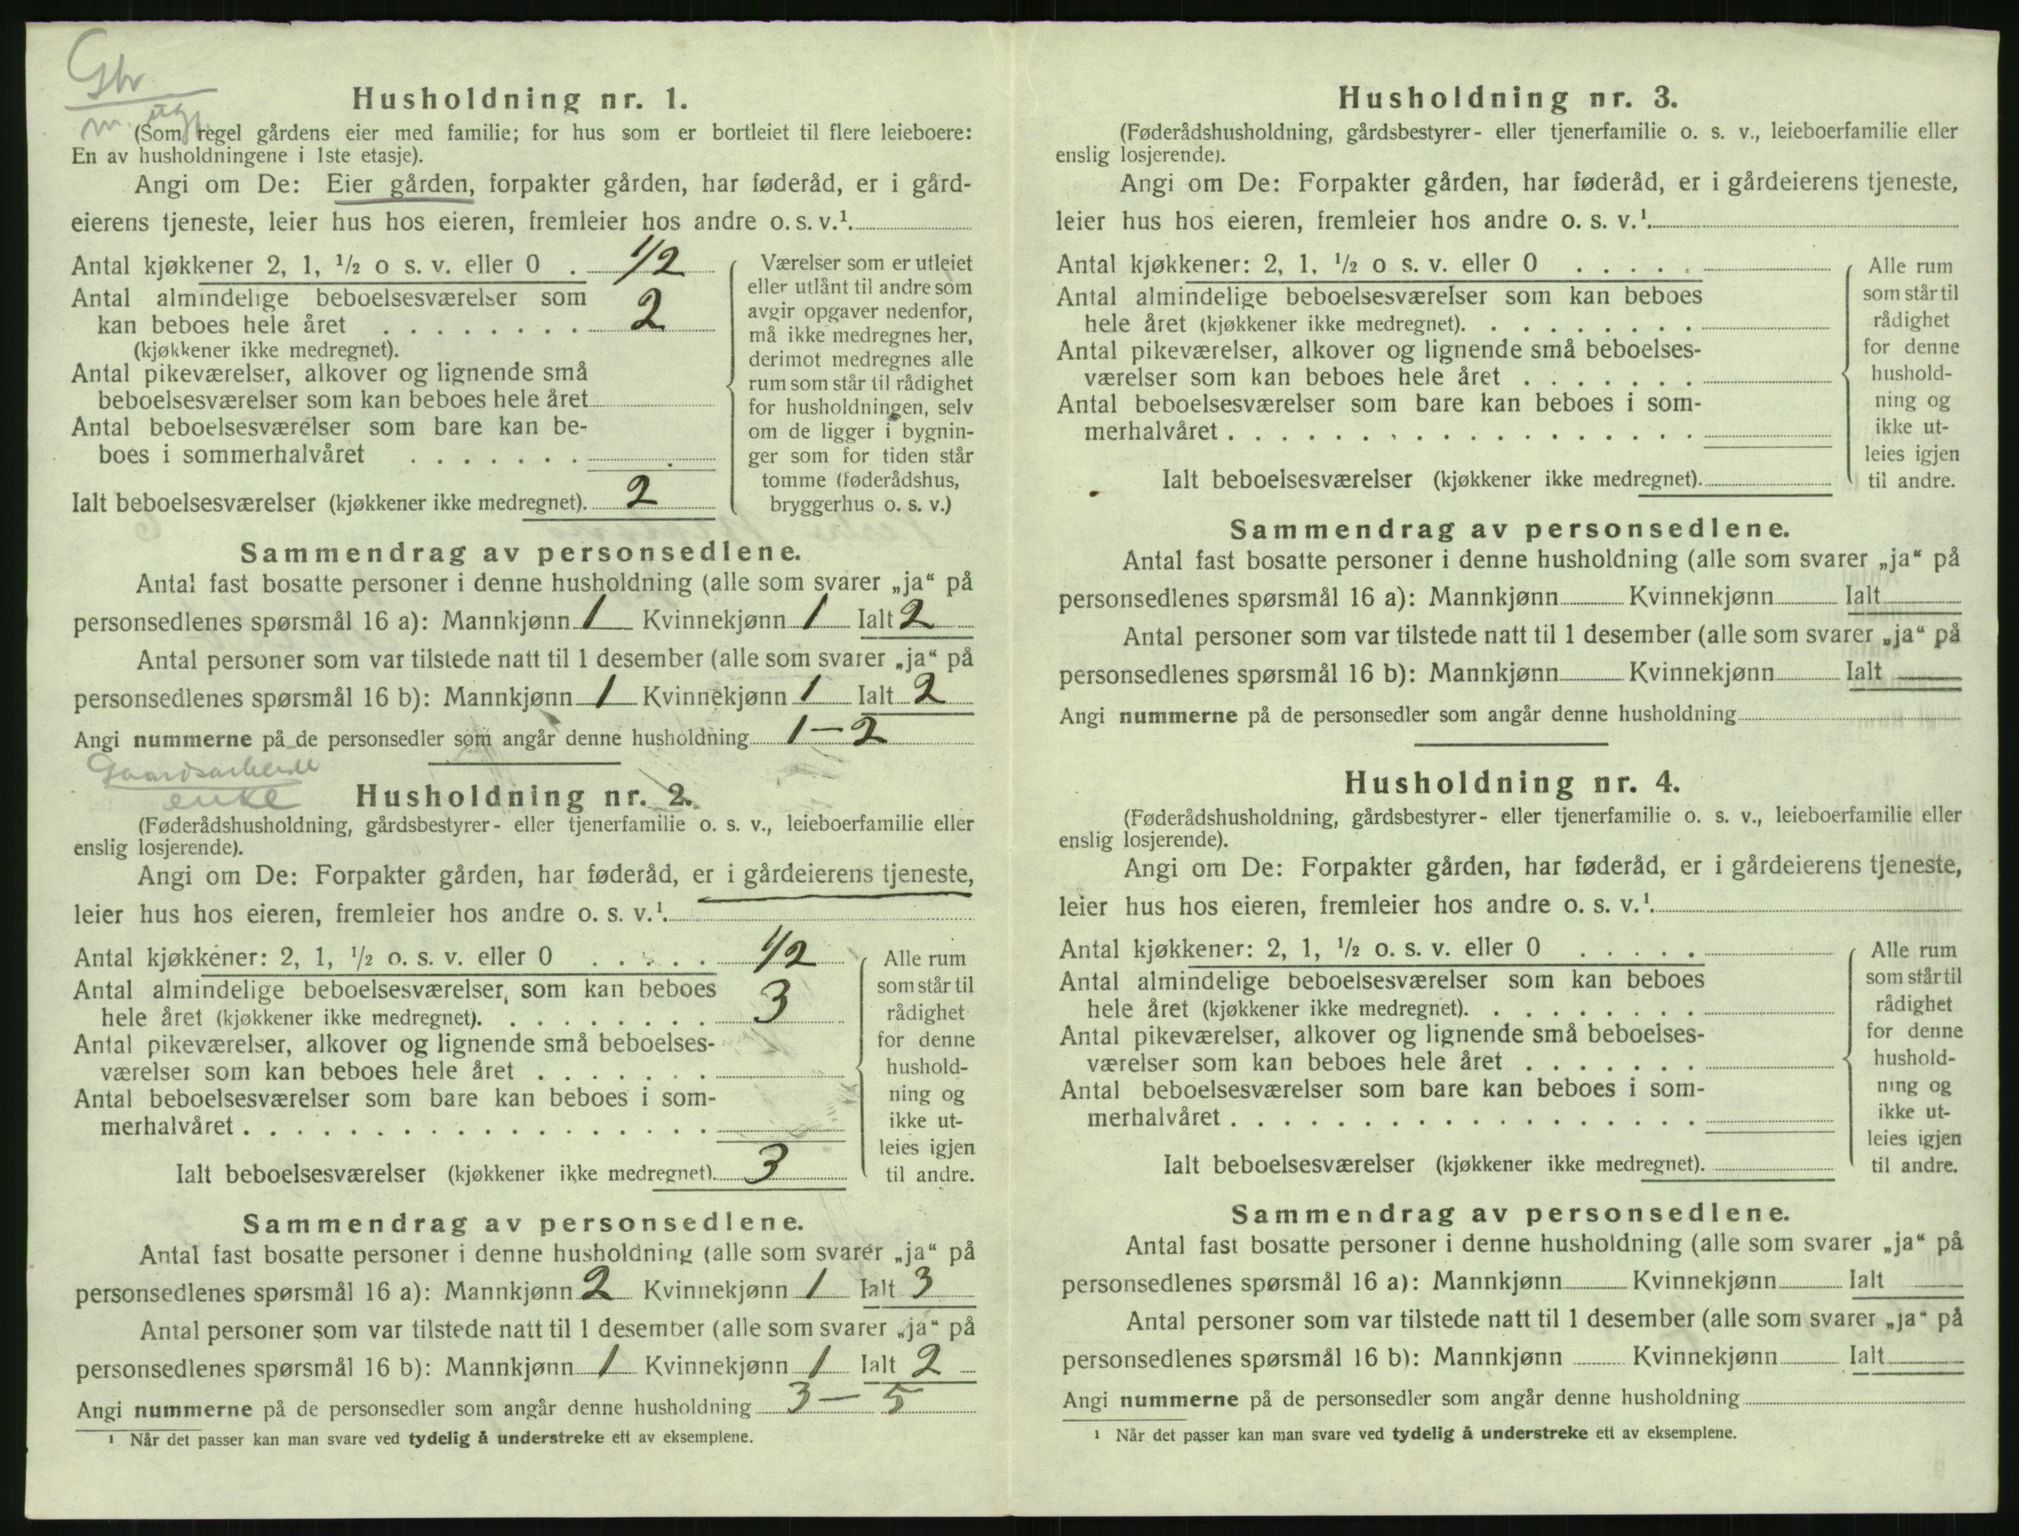 Gbr
m. ug
Husholdning nr. 1.
(Som regel gårdens eier med familie; for hus som er bortleiet til flere leieboere:
En av husholdningene i 1ste etasje).
Angi om De: Eier gården, forpakter gården, har føderåd, er i gård-
eierens tjeneste, leier hus hos eieren, fremleier hos andre o. s. v.¹.
Antal kjøkkener 2, 1, ½ o s. v. eller 0 . 1/2
Antal almindelige beboelsesværelser som
kan beboes hele året . . . . . . . . 2
(kjøkkener ikke medregnet).
Antal pikeværelser, alkover og lignende små
beboelsesværelser som kan beboes hele året
Antal beboelsesværelser som bare kan be-
boes i sommerhalvåret . . . . . . .
Ialt beboelsesværelser (kjøkkener ikke medregnet). 2
Værelser som er utleiet
eller utlånt til andre som
avgir opgaver nedenfor,
må ikke medregnes her,
derimot medregnes alle
rum som står til rådighet
for husholdningen, selv
om de ligger i bygnin-
ger som for tiden står
tomme (føderådshus,
bryggerhus o. s. v.)
Sammendrag av personsedlene.
Antal fast bosatte personer i denne husholdning (alle som svarer „ja“ på
personsedlenes spørsmål 16 a): Mannkjønn 1 Kvinnekjønn 1 Ialt 2
Antal personer som var tilstede natt til 1 desember (alle som svarer „ja“ på
personsedlenes spørsmål 16 b): Mannkjønn 1 Kvinnekjønn 1 Ialt 2
Angi nummerne på de personsedler som angår denne husholdning 1 – 2
Gaardsarbeide
enke
Husholdning nr. 2.
(Føderådshusholdning, gårdsbestyrer- eller tjenerfamilie o. s. v., leieboerfamilie eller
enslig losjerende).
Angi om De: Forpakter gården, har føderåd, er i gårdeierens tjeneste,
leier hus hos eieren, fremleier hos andre o. s. v.¹.
Antal kjøkkener: 2, 1, ½ o. s. v. eller 0 . . . . . 1/2
Antal almindelige beboelsesværelser som kan beboes
hele året (kjøkkener ikke medregnet). . . . . . . . . 3
Antal pikeværelser, alkover og lignende små beboelses-
værelser som kan beboes hele året . . . . . . .
Antal beboelsesværelser som bare kan beboes i som-
merhalvåret . . . . . . . . . . . . . . . . . .
Ialt beboelsesværelser (kjøkkener ikke medregnet). 3
Alle rum
som står til
rådighet
for denne
hushold-
ning og
ikke ut-
leies igjen
til andre.
Sammendrag av personsedlene.
Antal fast bosatte personer i denne husholdning (alle som svarer „ja“ på
personsedlenes spørsmål 16 a): Mannkjønn 2 Kvinnekjønn 1 Ialt 3
Antal personer som var tilstede natt til 1 desember (alle som svarer „ja“ på
personsedlenes spørsmål 16 b): Mannkjønn 1 Kvinnekjønn 1 Ialt 2
Angi nummerne på de personsedler som angår denne husholdning 3 – 5
¹ Når det passer kan man svare ved tydelig å understreke ett av eksemplene.
Husholdning nr. 3.
(Føderådshusholdning, gårdsbestyrer- eller tjenerfamilie o. s. v., leieboerfamilie eller
enslig losjerende).
Angi om De: Forpakter gården, har føderåd, er i gårdeierens tjeneste,
leier hus hos eieren, fremleier hos andre o. s. v.¹.
Antal kjøkkener: 2, 1, ½ o s. v. eller 0 . . . . .
Antal almindelige beboelsesværelser som kan beboes
hele året (kjøkkener ikke medregnet). . . . . . . . .
Antal pikeværelser, alkover og lignende små beboelses-
værelser som kan beboes hele året . . . . . . .
Antal beboelsesværelser som bare kan beboes i som-
merhalvåret . . . . . . . . . . . . . . . . . .
Ialt beboelsesværelser (kjøkkener ikke medregnet).
Alle rum
som står til
rådighet
for denne
hushold-
ning og
ikke ut-
leies igjen
til andre.
Sammendrag av personsedlene.
Antal fast bosatte personer i denne husholdning (alle som svarer „ja“ på
personsedlenes spørsmål 16 a): Mannkjønn Kvinnekjønn Ialt
Antal personer som var tilstede natt til 1 desember (alle som svarer „ja“ på
personsedlenes spørsmål 16 b): Mannkjønn Kvinnekjønn Ialt
Angi nummerne på de personsedler som angår denne husholdning
Husholdning nr. 4.
(Føderådshusholdning, gårdsbestyrer- eller tjenerfamilie o. s. v., leieboerfamilie eller
enslig losjerende).
Angi om De: Forpakter gården, har føderåd, er i gårdeierens tjeneste,
leier hus hos eieren, fremleier hos andre o. s. v.¹.
Antal kjøkkener: 2, 1, ½ o. s. v. eller 0 . . . . .
Antal almindelige beboelsesværelser som kan beboes
hele året (kjøkkener ikke medregnet). . . . . . . . .
Antal pikeværelser, alkover og lignende små beboelses-
værelser som kan beboes hele året . . . . . . .
Antal beboelsesværelser som bare kan beboes i som-
merhalvåret . . . . . . . . . . . . . . . . . .
Ialt beboelsesværelser (kjøkkener ikke medregnet).
Alle rum
som står til
rådighet
for denne
hushold-
ning og
ikke ut-
leies igjen
til andre.
Sammendrag av personsedlene.
Antal fast bosatte personer i denne husholdning (alle som svarer „ja“ på
personsedlenes spørsmål 16 a): Mannkjønn Kvinnekjønn Ialt
Antal personer som var tilstede natt til 1 desember (alle som svarer „ja“ på
personsedlenes spørsmål 16 b): Mannkjønn Kvinnekjønn Ialt
Angi nummerne på de personsedler som angår denne husholdning
¹ Når det passer kan man svare ved tydelig å understreke ett av eksemplene.